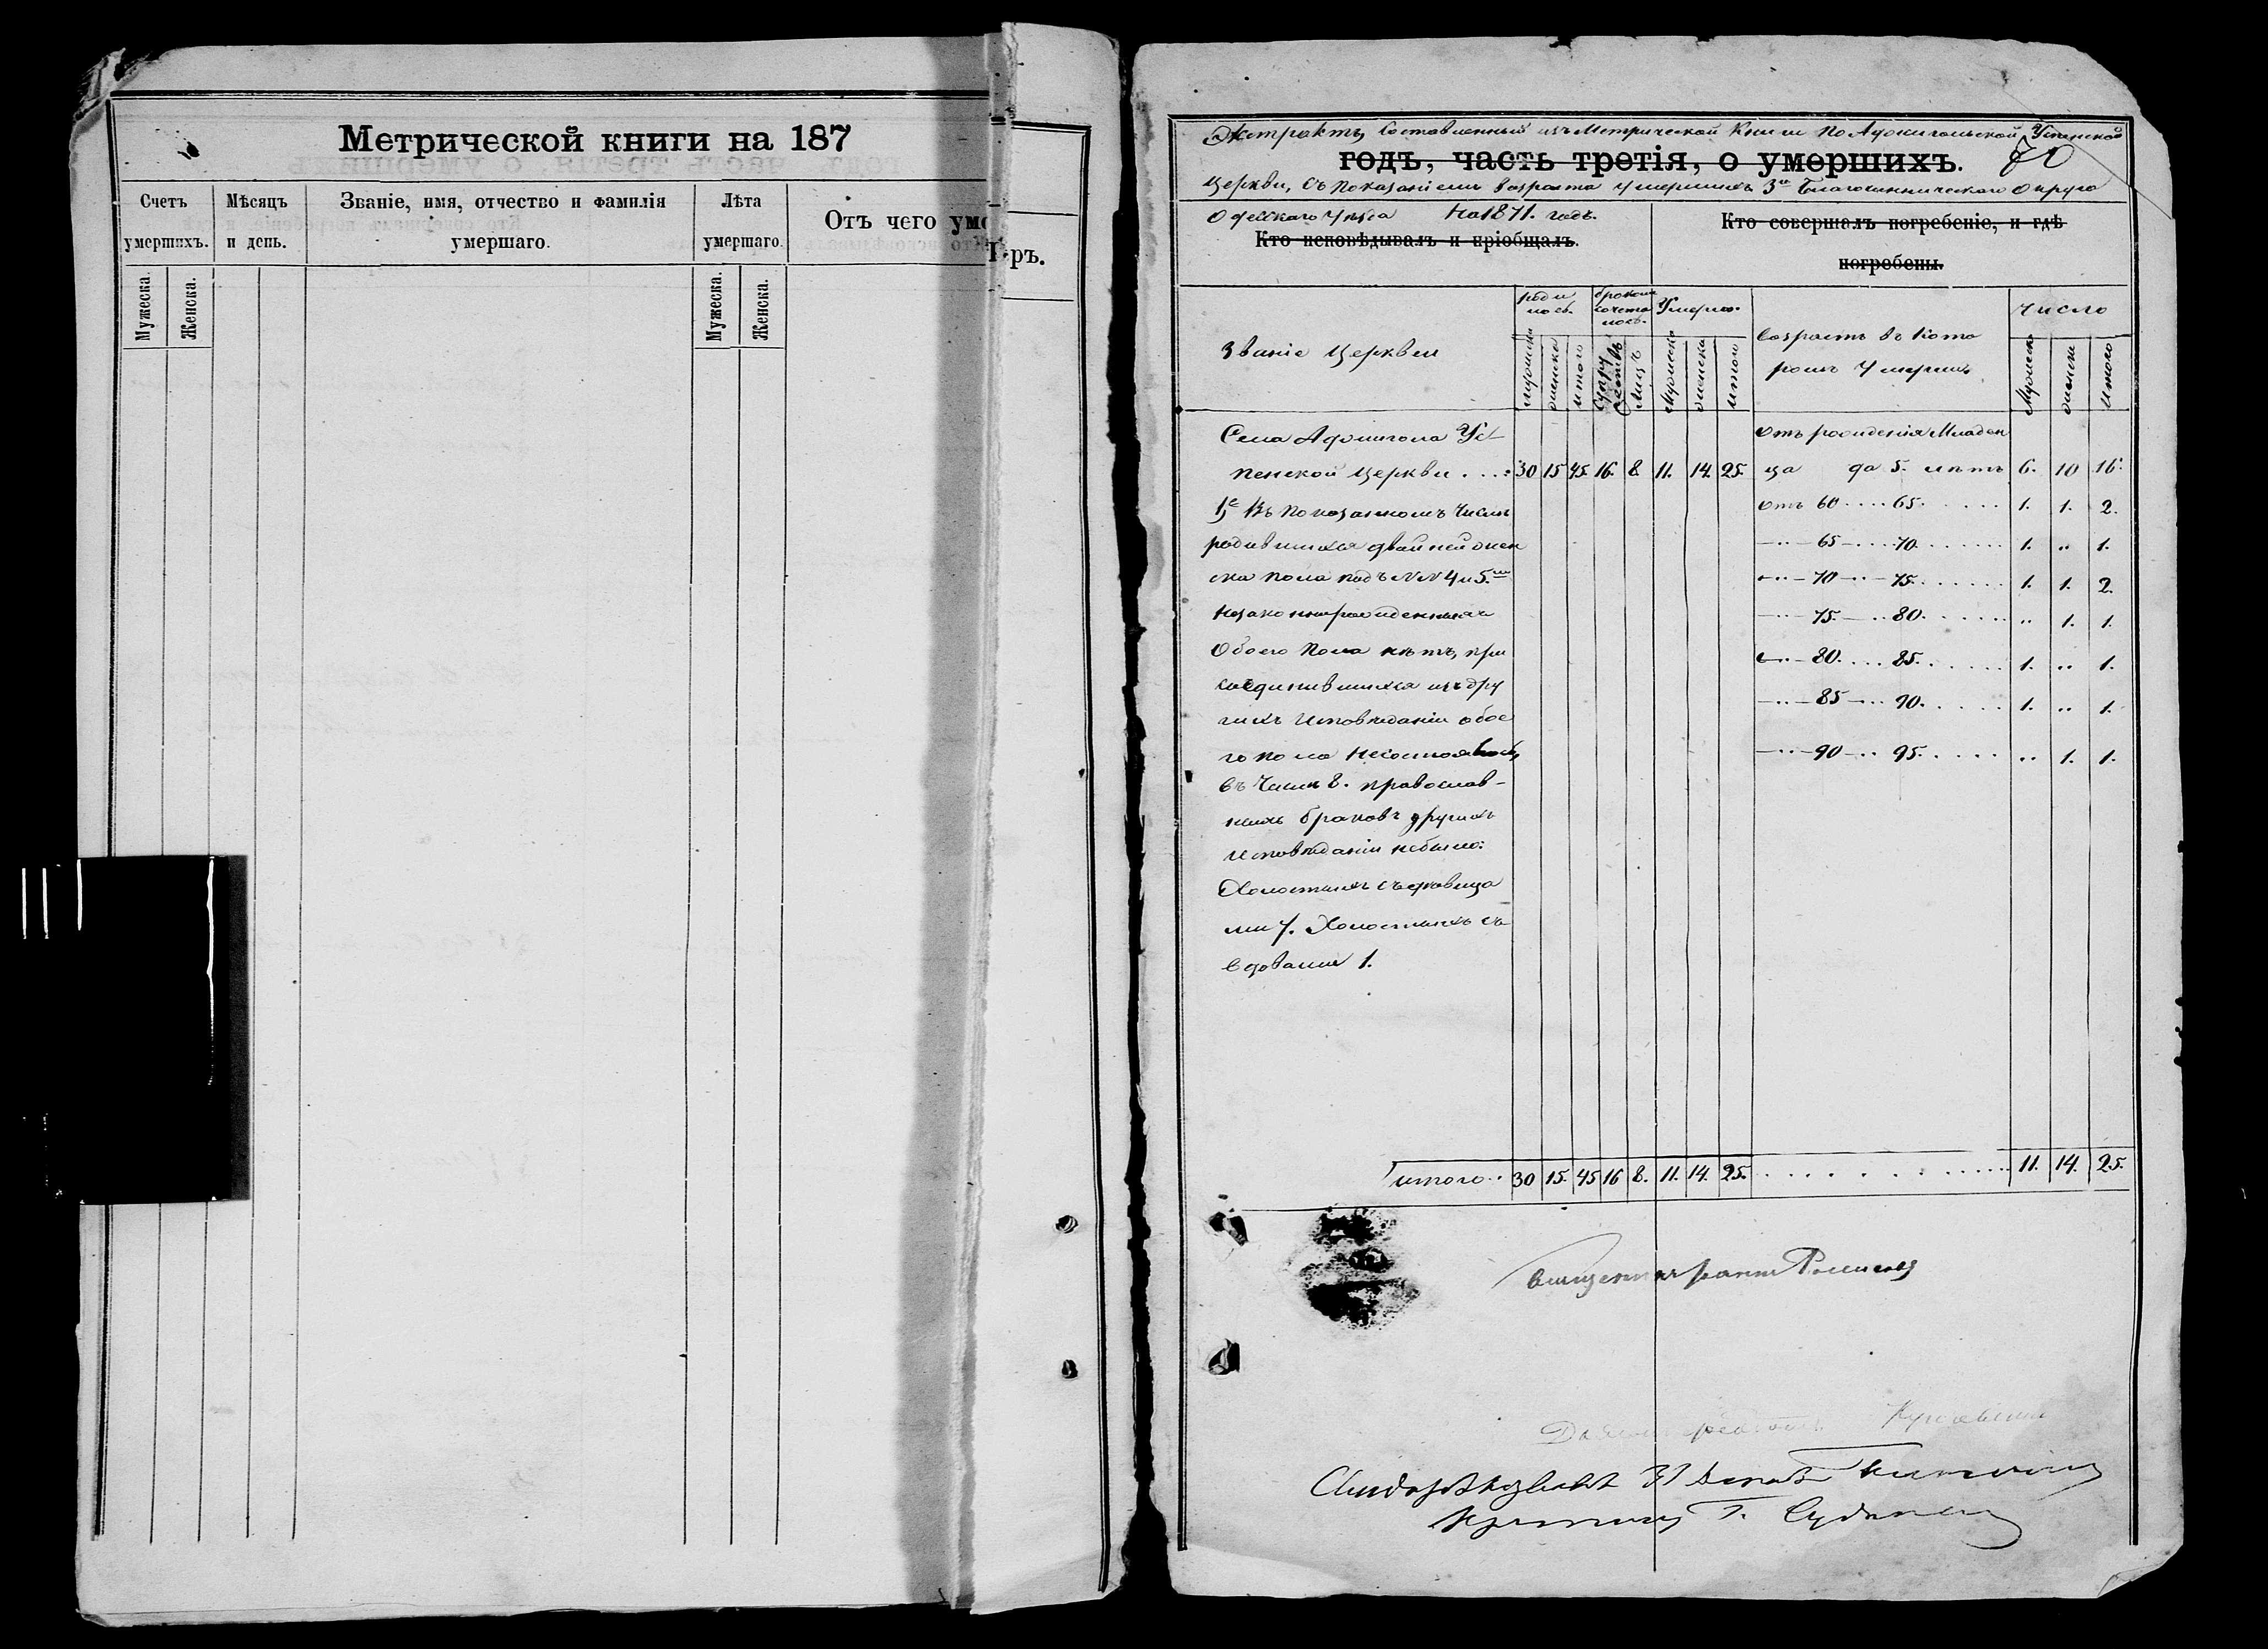 Метрической книги на 187
Счетъ умершихъ.
Мѣсяцъ и день.
Званіе, имя, отчество и фамилія умершаго.
Лѣта умершаго.
Отъ чего уме
Мужеска.
Женска.
Мужеска.
Женска.
ръ.
Экстрактъ, Составленный изъ Метрической Книги по Аджигольской Успенской
годъ, часть третія, о умершихъ.
70
Церкви, съ показаніемъ возраста умершихъ 3го Благочинническаго Округа
Одесскаго Уѣзда на 1871. годъ.
Кто исповѣдывалъ и пріобщалъ.
Кто совершалъ погребеніе, и гдѣ погребены.
Званіе Церкви
роди лось.
бракомъ сочета лось.
Умерло.
Возрастъ въ кото ромъ Умерли.
Число
мужеска
женска
итого
Супру жествъ
Лицъ
Мужеска
женска
итого
Мужеска
женска
итого
Села Аджигола Ус
пенской Церкви . . . : 30 15 45. 16. 8. 11. 14. 25.
1е Въ показанномъ Числѣ
родившихся двойней жен
ска пола подъ №№ 4 и 5.
незаконнорожденныхъ
Обоего пола нѣтъ, при
соединившихся изъ дру
гихъ Исповѣданій обое
го пола
въ Числѣ 8. православ-
ныхъ браковъ другихъ
Исповѣданій небыло:
Холостыхъ съ дѣвица
ми 7. Холостыхъ съ
вдовами 1.
Отъ рожденія Младен
ца до 5. лѣтъ 6. 10 16.
Отъ 60 .... 65. . . . . . 1. 1. 2.
— ·· — 65 — .... 70. . . . . . . 1. ·· 1.
— ·· — 70 — ·· — 75. . . . . . 1. 1. 2.
— ·· — 75. — ·· 80. . . . . . ·· 1. 1.
— ·· — 80. . . . 85. . . . . . 1. ·· 1.
— ·· — 85 — ·· 90. . . . . 1. ·· 1.
— ·· — 90 — ·· 95. . . . . . ·· 1. 1.
итого . . 30 15. 45 16 8. 11. 14. 25. . . . . . . . . 11. 14. 25.
Священникъ